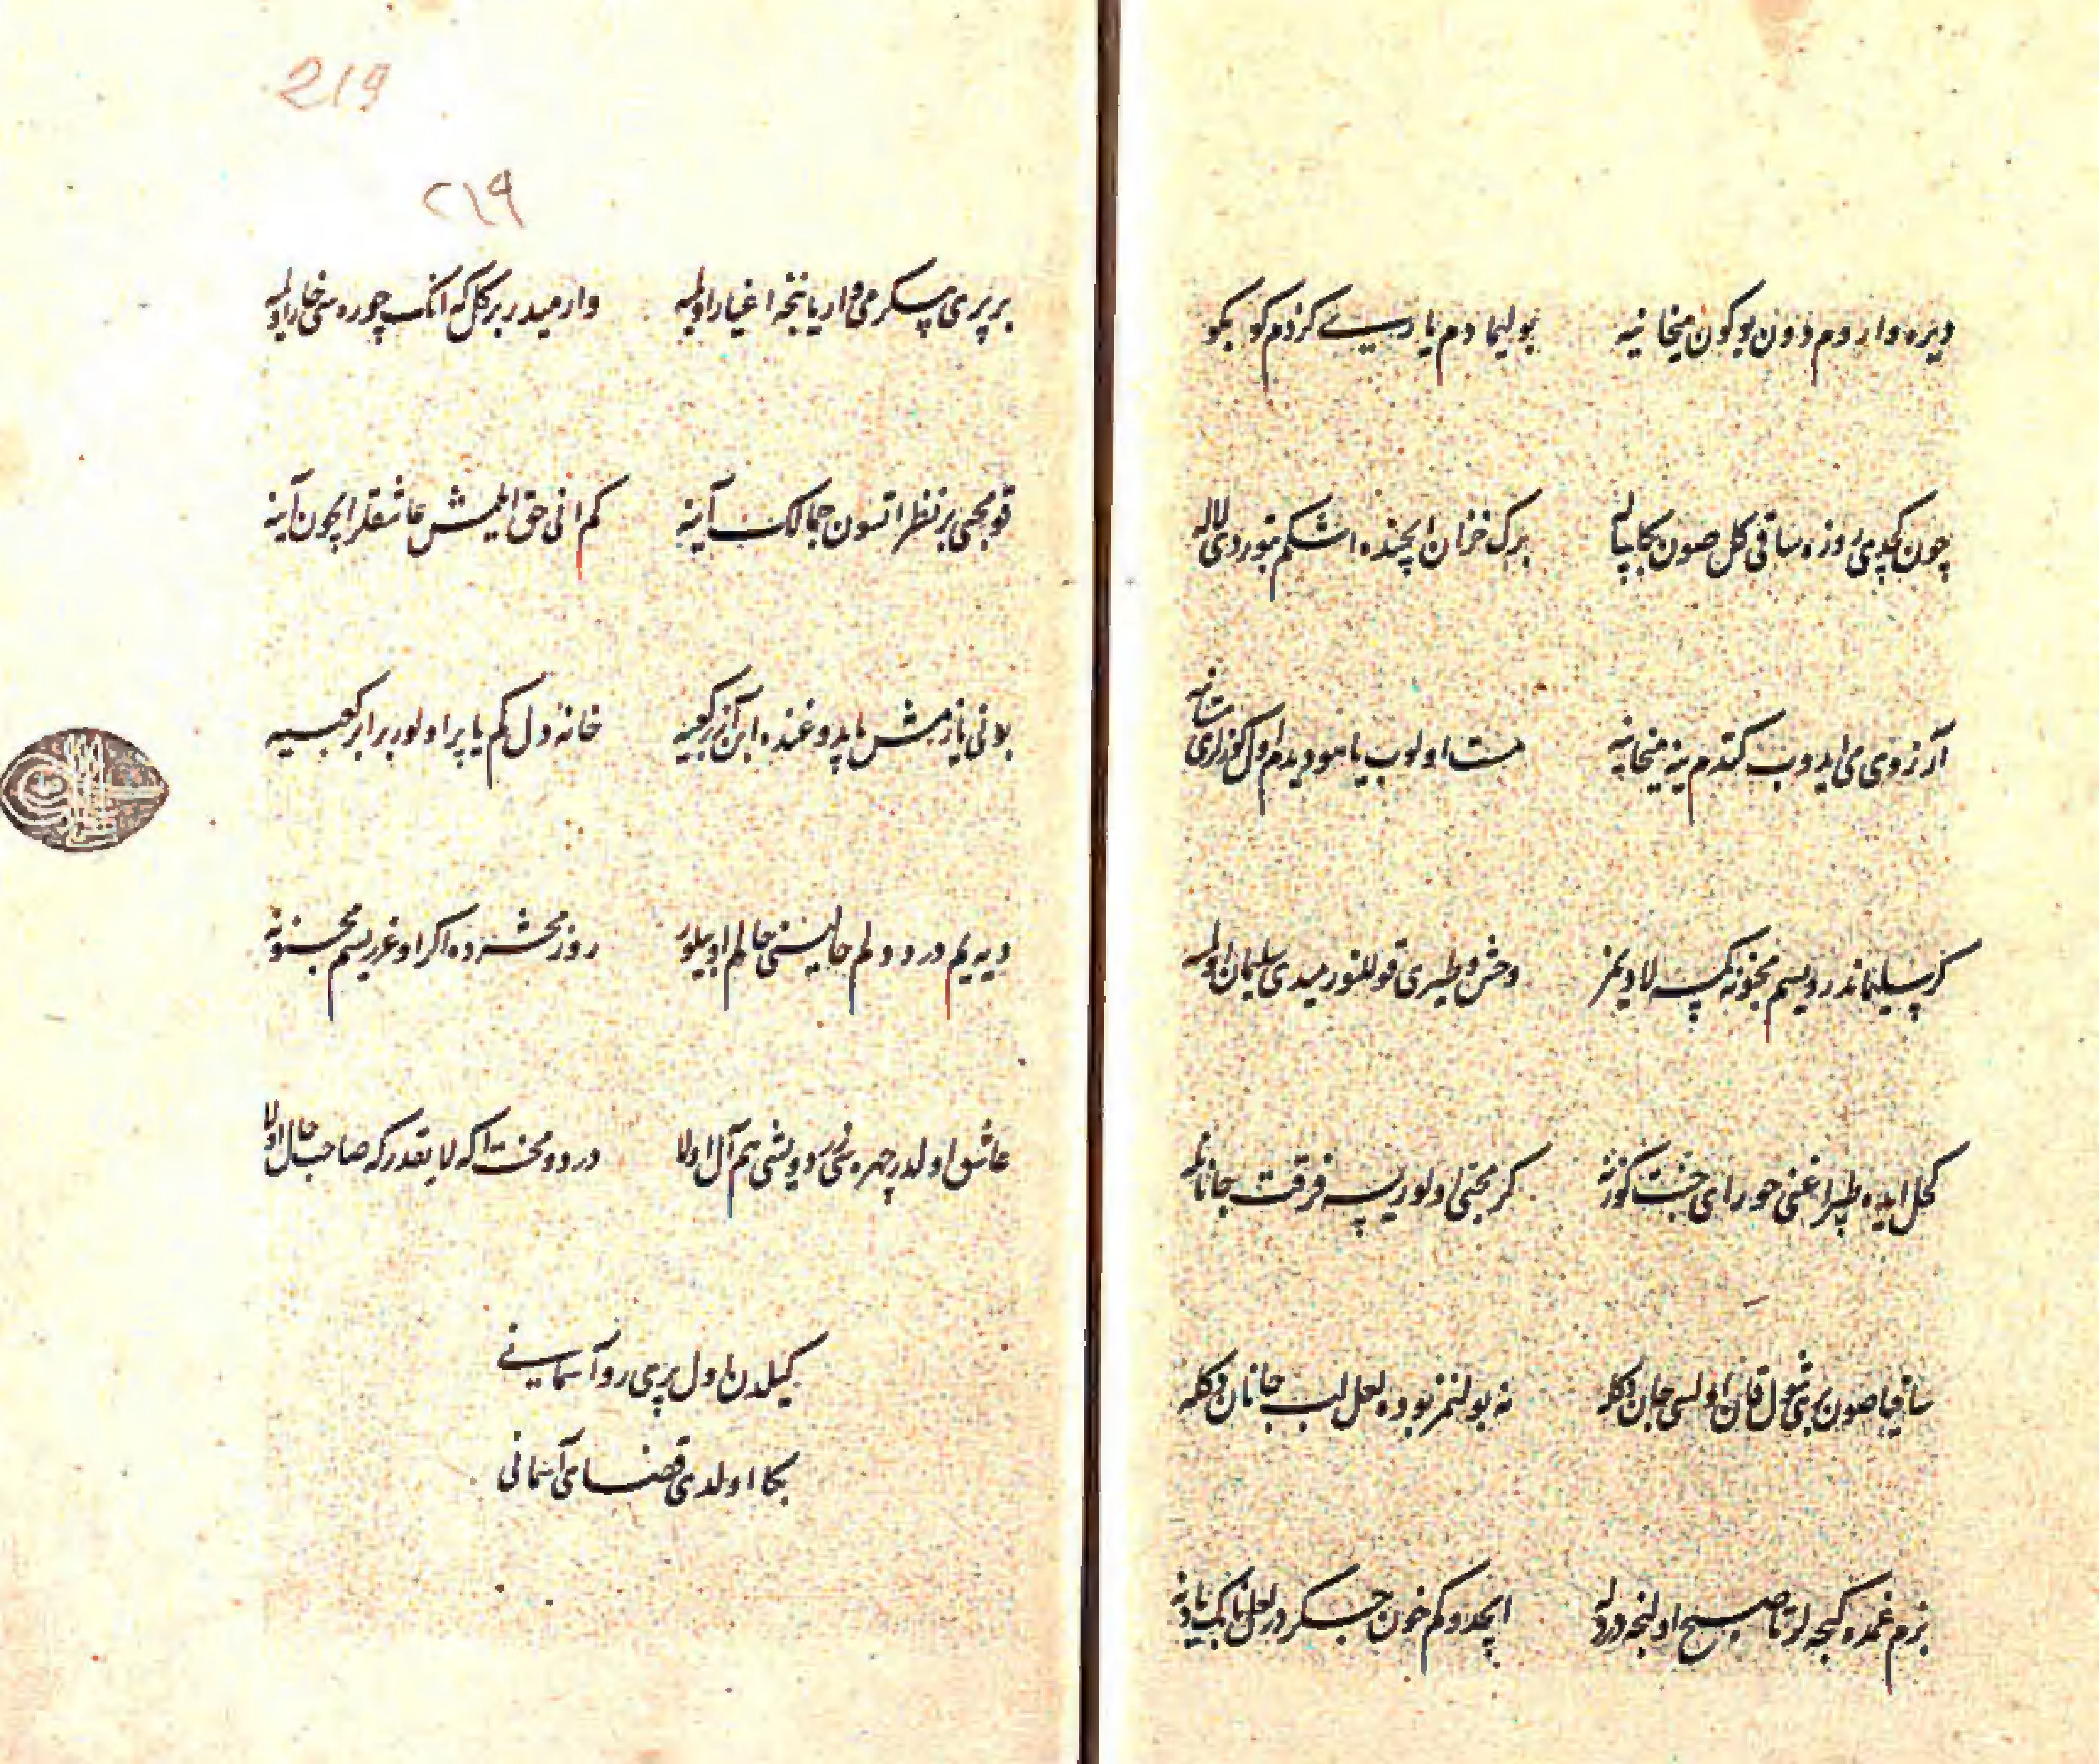 دیره واردم دون بوکون میخانیه بولیمادم یارسے کزدم کو بکو
چون کچدی روزه ساقی کل صون بکا پیاله برک خزان ایچنده اشکم بتوردی لاله
آرزوی می ایدوب کتدم ینه میخانیه مست اولوب یا هو دیدم اول کوزلری مستانیه
کر سلیماندر دیسم مجنونه کمسه لا دیمز وحش و طیری قوللنورمیدی سلیمان اولمسه
کحل ایده طپراغنی حورای جنت کوزنه کر محبی اولوریسه فرقت جانانله
ساقیا صون بزی شول قان اولسی جان دکلمی نه بولنمز بو ده لعل لب جانان دکله
بزم غمده کیجه لر تا صبح اولنجه دردله ایچدوکم خون جکردر لعل نابک یادنه
219
٢١٩
بر پری پیکرمی وار یا نیجه اغیار اولمیه وارمیدر بر کل که انک چوره سی خار اولمیه
قو محبی بر نظر اتسون جمالک آینه کم انی حق ایلمش عاشقلر ایچون آینه
بونی یازمش یاپدوغنده ابن آزر کعبیه خانۀ دل کم یاپر اولور برابر کعبیه
دیه یم درد دلم حالمی حالم او بیلور روز محشرده اکر اوغریسم مجنونه
عاشق اولدر چهره سی زرد و یشی هم آل اولا درد و محنت اکه لایقدر که صاحب حال اولا
کیلدن اول پری رو آسمانے
بکا اولدی قضای آسمانی